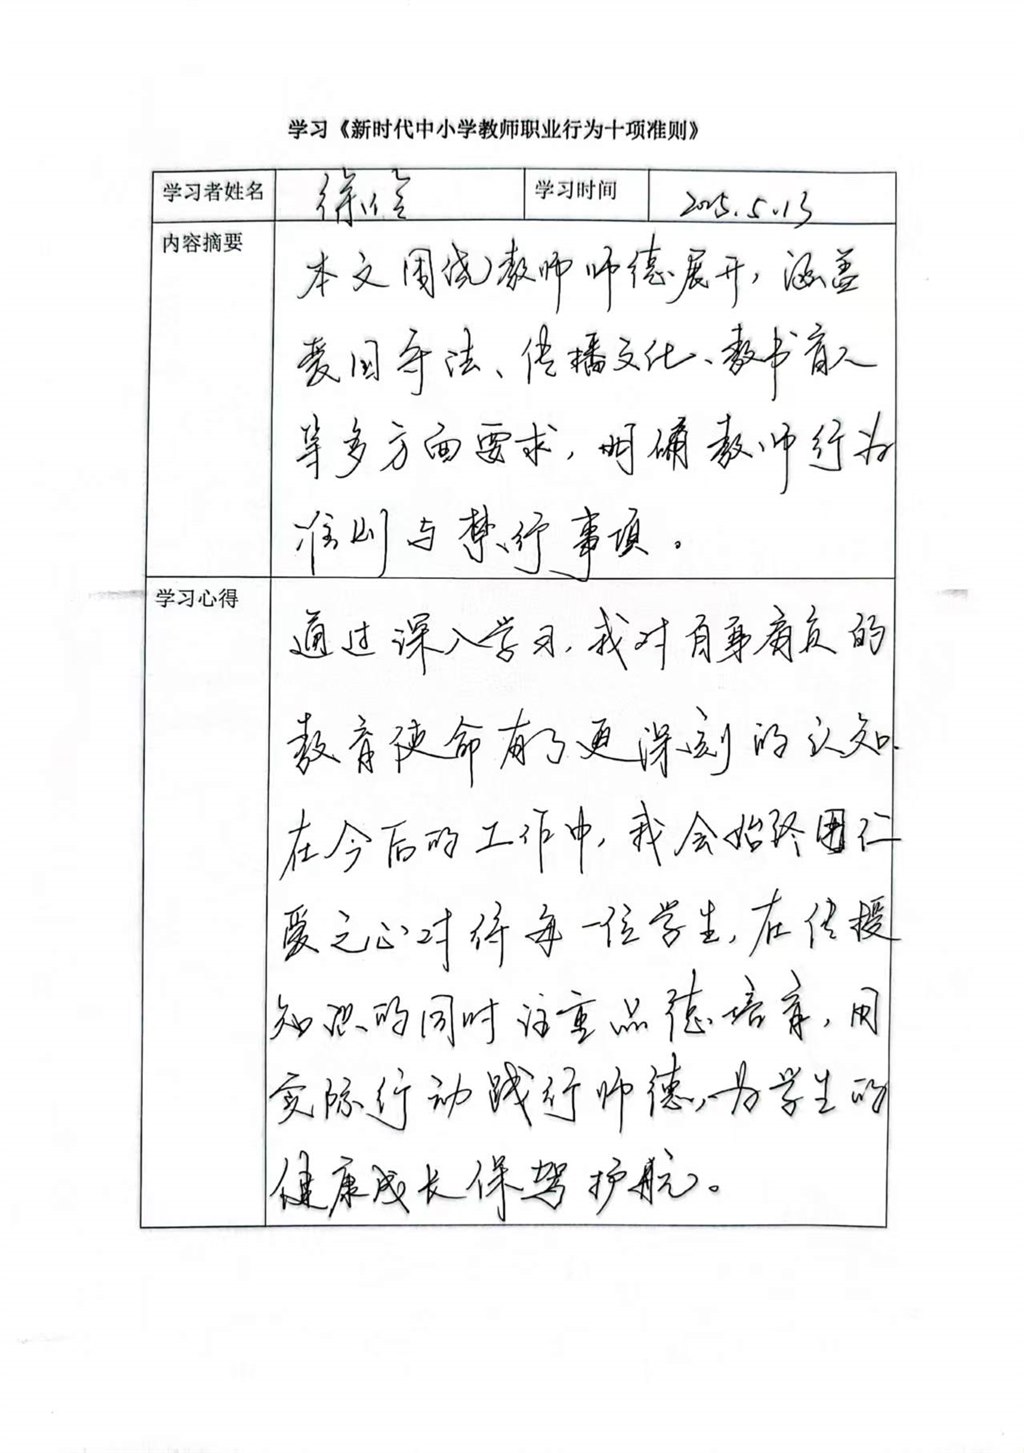 学习《新时代中小学教师职业行为十项准则》
学习者姓名 徐 学习时间 2025.5.13
内容摘要
本文围绕教师师德展开，涵盖
爱国守法、传播文化、教书育人
等多方面要求，明确教师行为
准则与禁行事项。
学习心得
通过深入学习，我对自身肩负的
教育使命有了更深刻的认知
在今后的工作中，我会始终用仁
爱之心对待每一位学生，在传授
知识的同时注重品德培育，用
实际行动践行师德，为学生的
健康成长保驾护航。